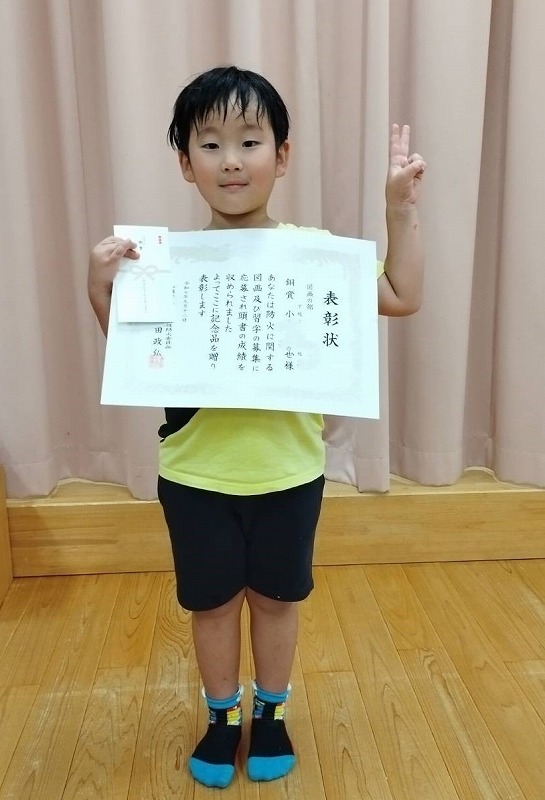 表彰状
図画の部
銅賞 小 也様
あなたは防火に関する
図画及び習字の募集に
応募され頭書の成績を
収められました
よってここに記念品を贈り
表彰します
田政弘